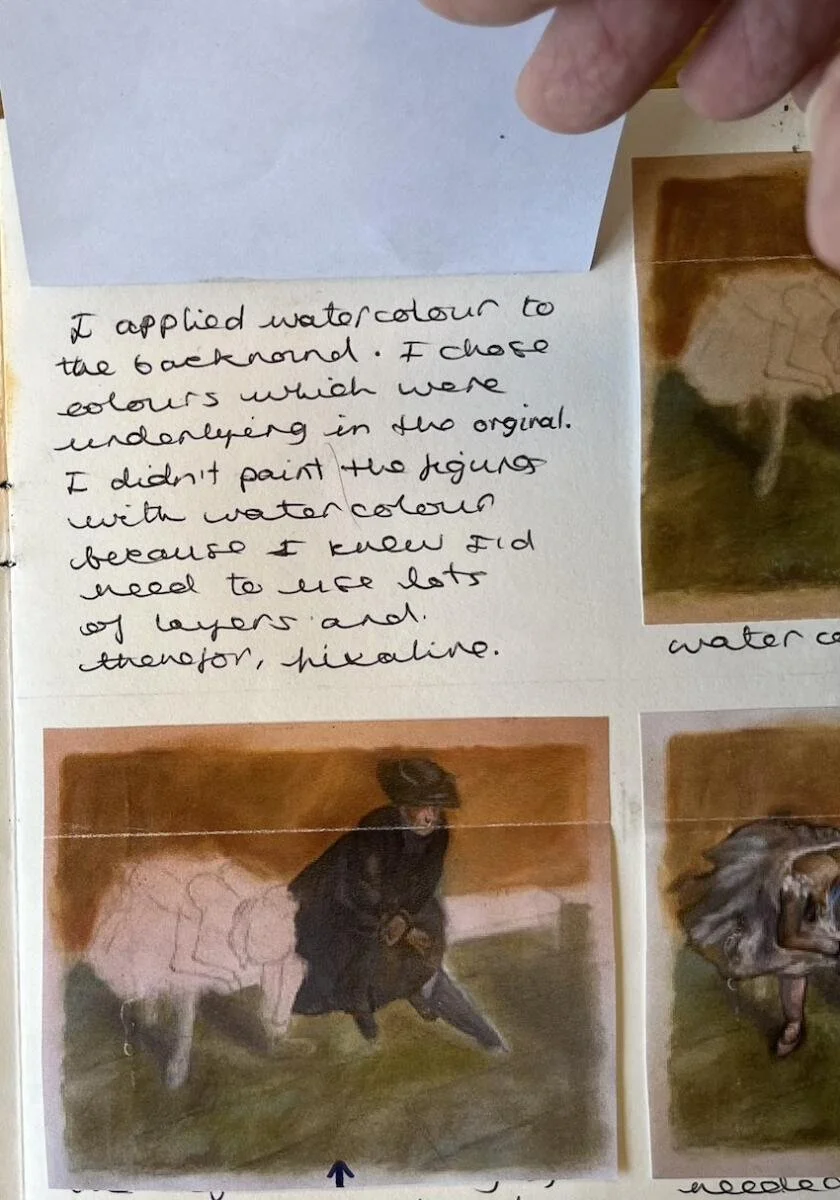 I applied watercolour to
the backnornd. I chose
colours which were
underlying in the orginal.
I didn't paint the figures
with watercolour
because I knew I'd
need to use lots
of layers and.
therefor,
water co
needed